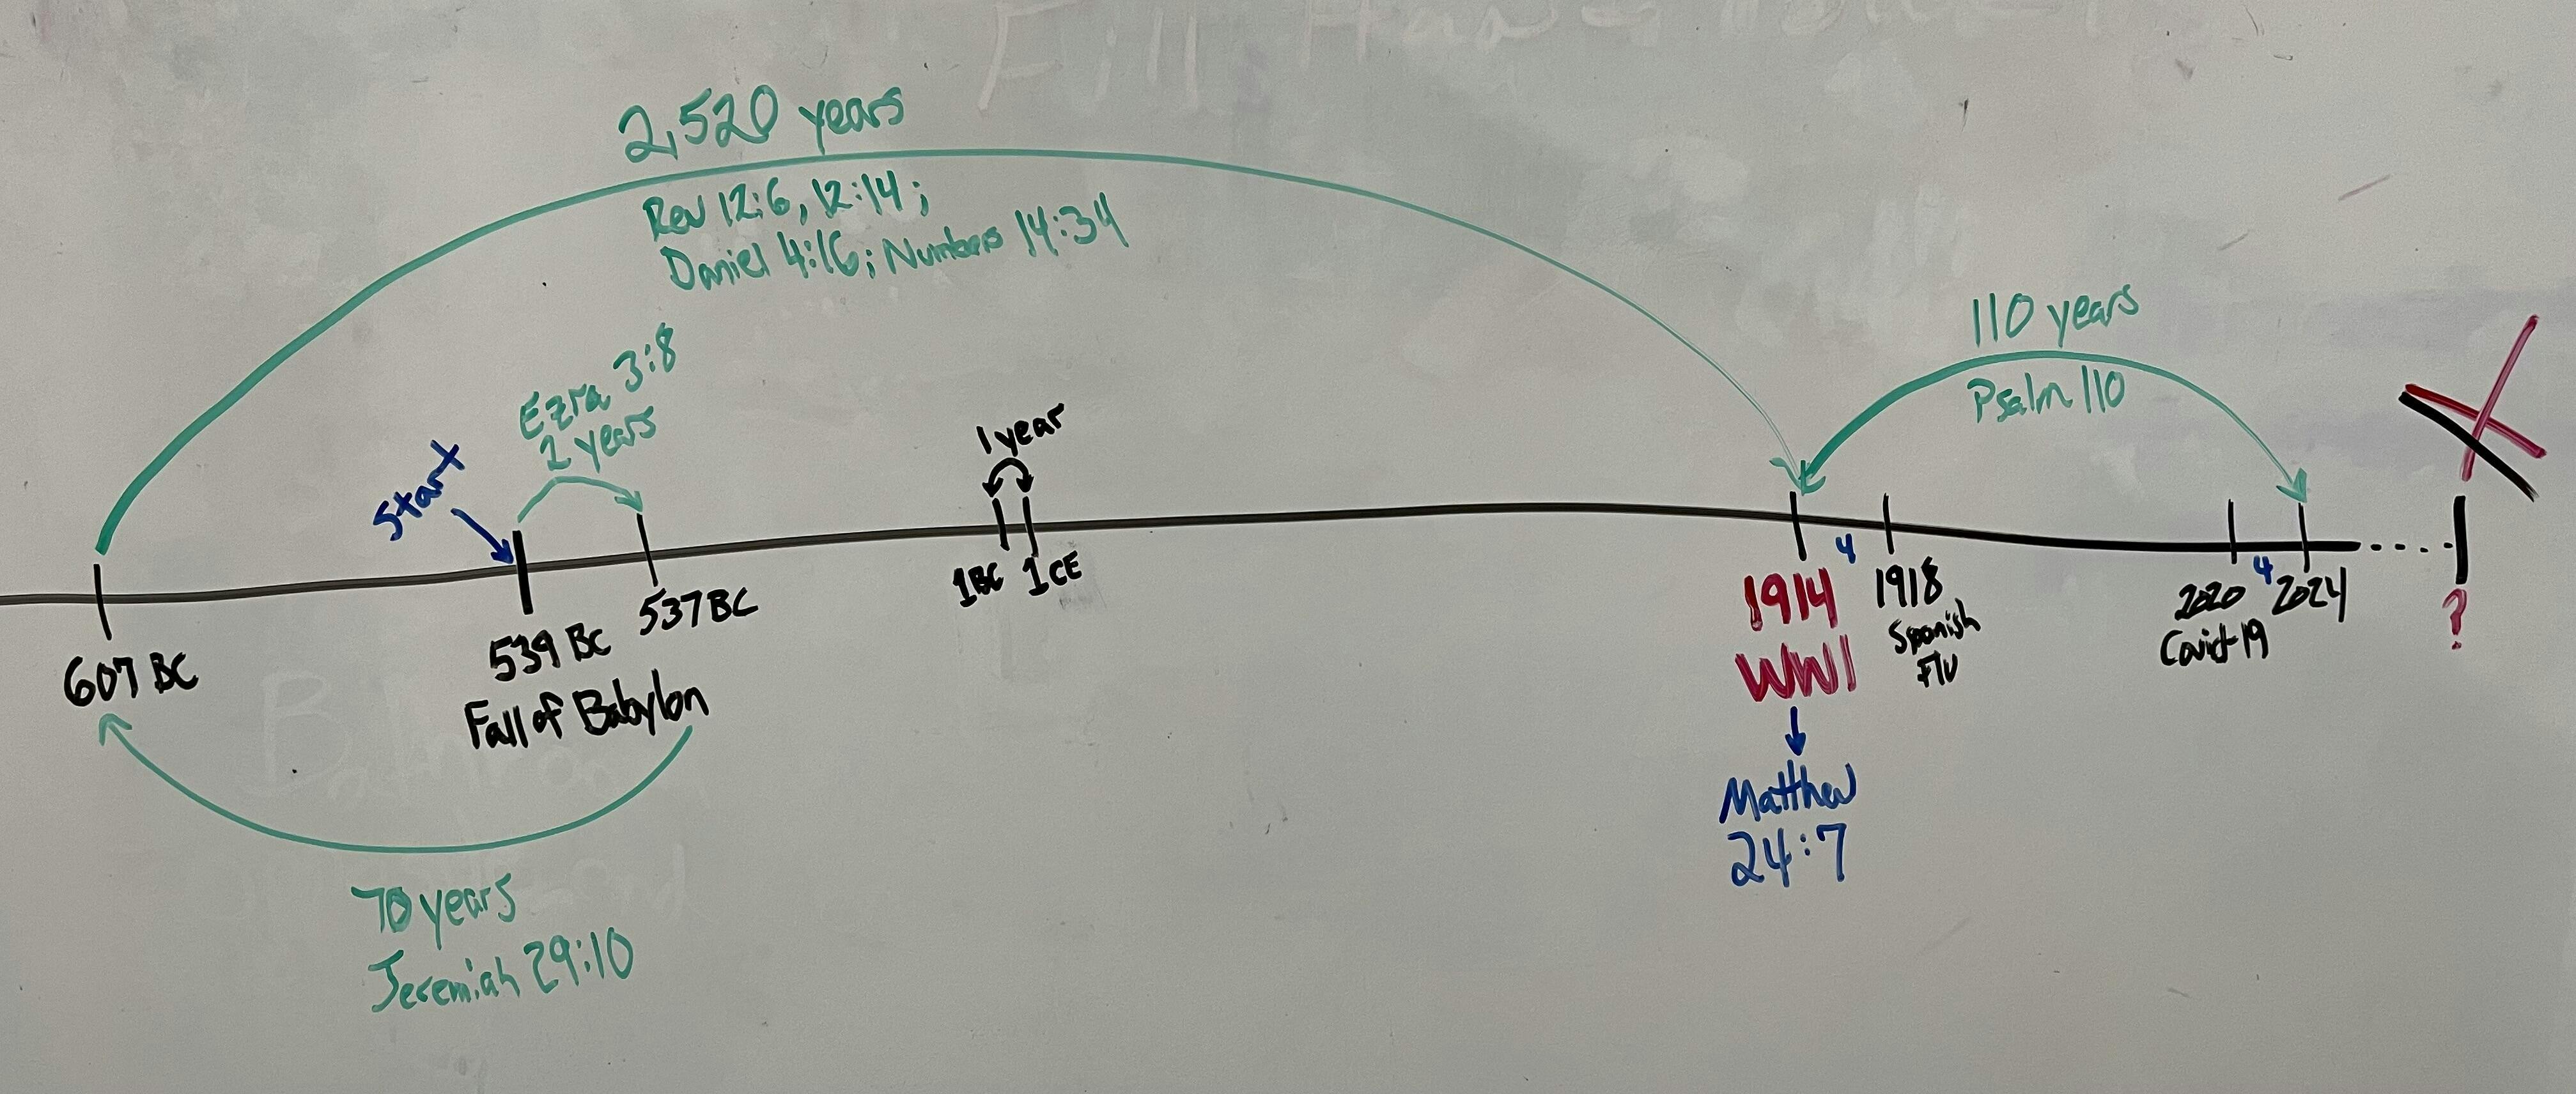 2,520 years
Rev 12:6, 12:14;
Daniel 4:16; Numbers 14:34
Ezra 3:8
2 years
Start
1 year
110 years
Psalm 110
607 BC
539 BC
Fall of Babylon
537 BC
1 BC
1 CE
1914
WW1
4
1918
Spanish
Flu
2020
Covid-19
4
2024
?
Matthew
24:7
70 years
Jeremiah 29:10
Fill